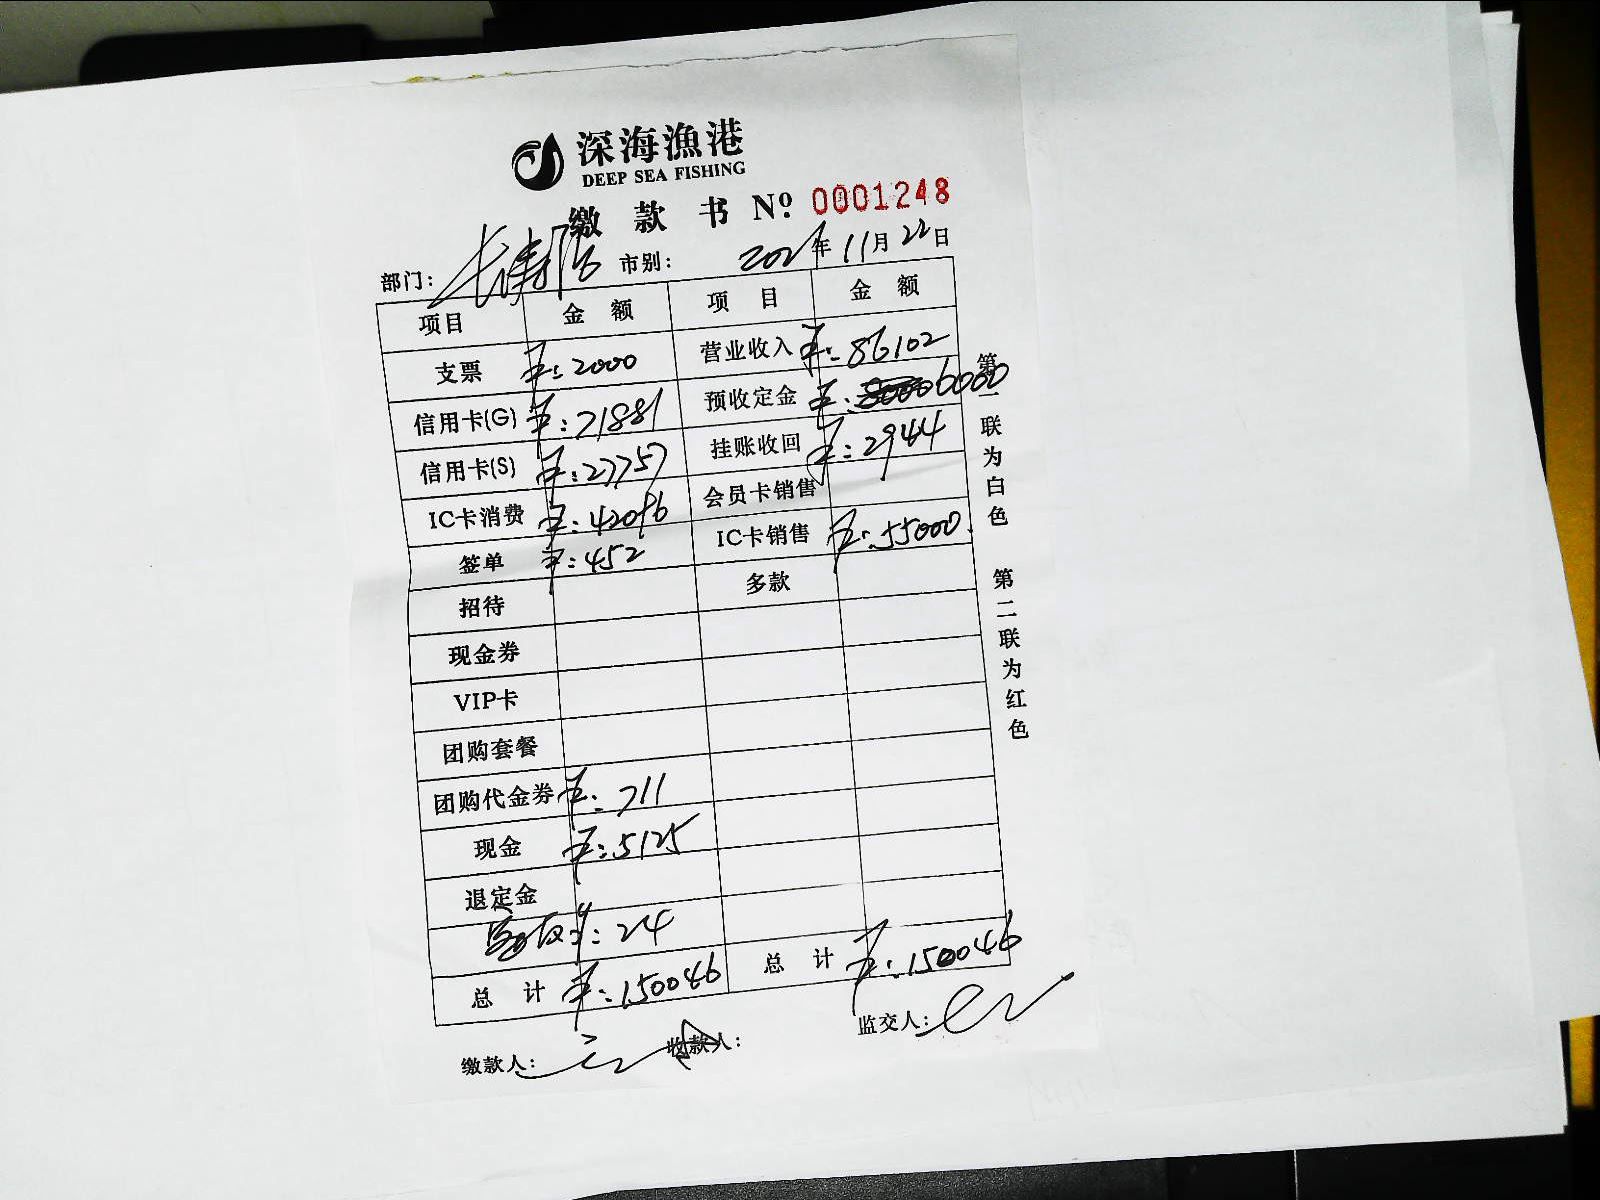 深海漁港
DEEP SEA FISHING
缴款书 Nº: 0001248
部门: 市别: 2021年11月22日
项目 金额 项目 金额
支票 ¥:2000 营业收入 ¥:86102
信用卡(G) ¥:71881 预收定金 ¥:6000
信用卡(S) ¥:27757 挂账收回 ¥:2944
IC卡消费 ¥:42096 会员卡销售
签单 ¥:452 IC卡销售 ¥:55000
招待 多款
现金券
VIP卡
团购套餐
团购代金券 ¥:711
现金 ¥:5125
退定金
¥:24
总计 ¥:150046 总计 ¥:150046
缴款人: 收款人: 监交人:
第一联为白色
第二联为红色